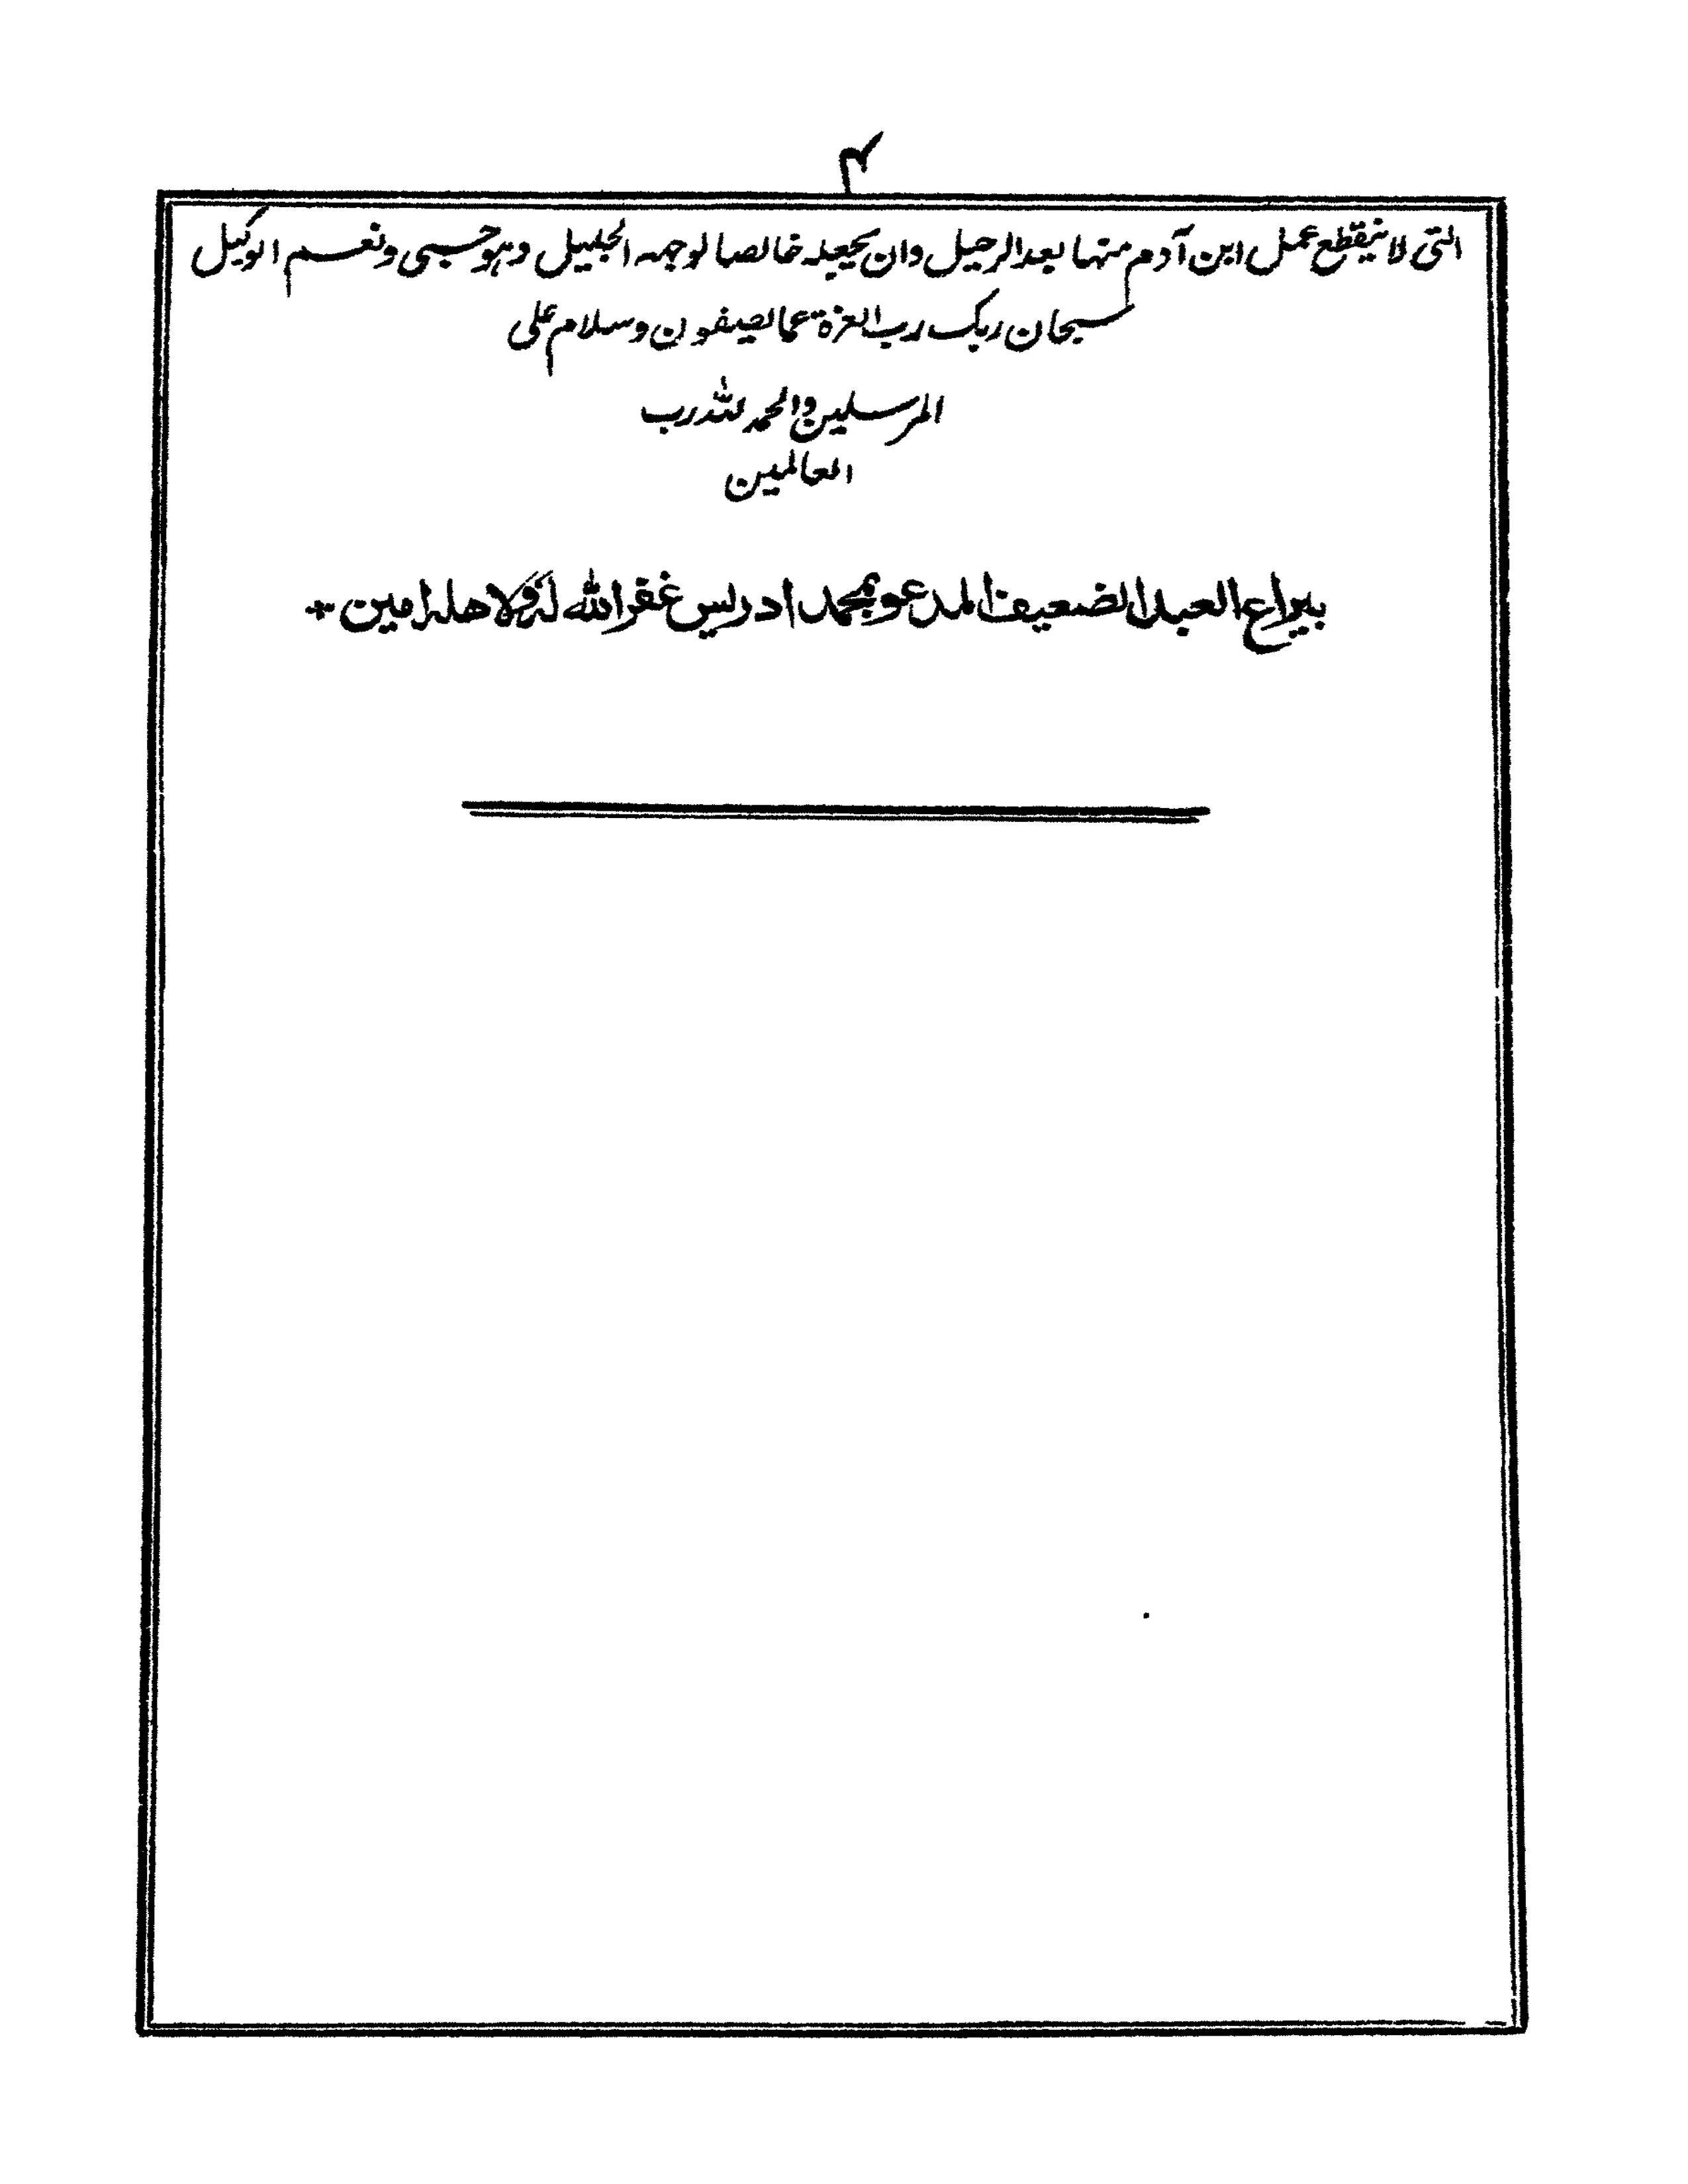 ۴
التی لا ینقطع عمل ابن آدم منها بعد الرحیل وان یجعله خالصا لوجهه الجلیل وهو حسبی ونعم الوکیل
سبحان ربک رب العزة عما یصفون وسلام علی
المرسلین والحمد لله رب
العالمین
بیراع العبد الضعیف المدعو بمحمد ادریس غفر الله له ولاهله امین